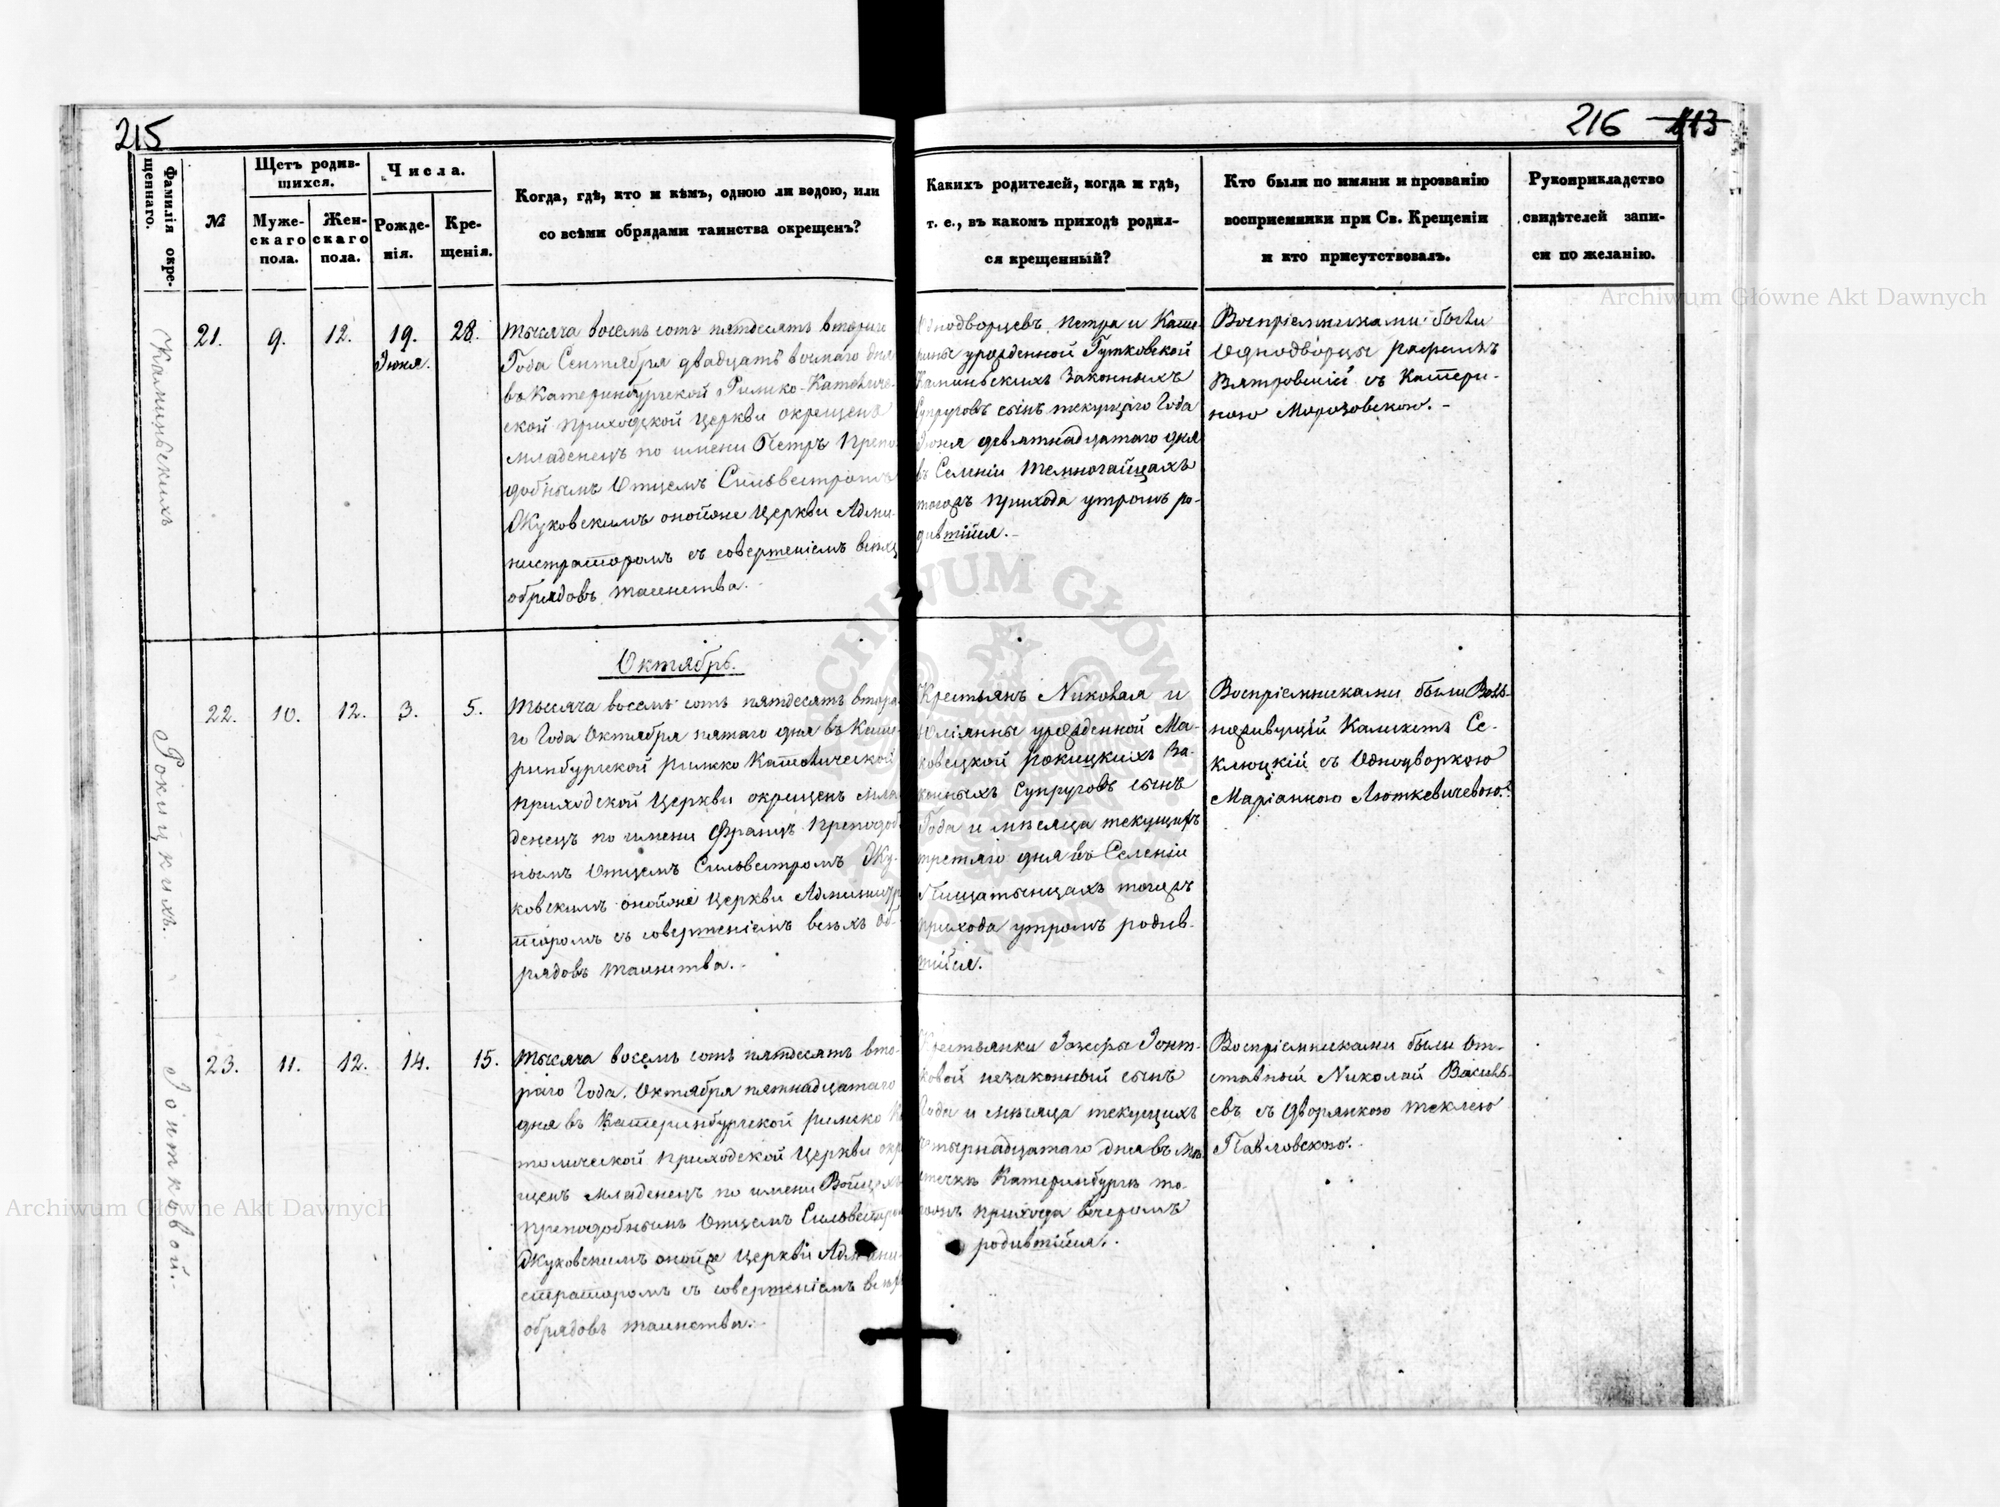 215
216 113
Фамилія окре-
щеннаго.
№
Щетъ родив-
шихся.
Муже-
скаго
пола.
Жен-
скаго
пола.
Числа.
Рожде-
нія.
Кре-
щенія.
Когда, гдѣ, кто и кѣмъ, одною ли водою, или
со всѣми обрядами таинства окрещенъ?
Какихъ родителей, когда и гдѣ,
т. е., въ какомъ приходѣ родил-
ся крещенный?
Кто были по имяни и прозванію
восприемники при Св. Крещеніи
и кто присутствовалъ.
Рукоприкладство
свидѣтелей запи-
си по желанію.
Каминьскихъ
21. 9. 12. 19. 28.
Іюня.
Тысяча восемь сотъ пятдесятъ втораго
Года Сентября двадцать восмаго дня
въ Катеринбургской Римско-Католиче-
ской приходской Церкви окрещенъ
младенецъ по имени Петръ Препо-
добнымъ Отцемъ Сильвестромъ
Жуковскимъ оной же Церкви Адми-
нистраторомъ съ совершеніемъ всѣхъ
обрядовъ таинства.
Однодворцевъ Петра и Кате-
рины урожденной Гутковской
Каминьскихъ Законныхъ
Супруговъ сынъ текущаго Года
Іюня девятнадцатаго дня
въ Селеніи Темногайцахъ
тогожъ прихода утромъ ро-
дившійся.
Воспріемниками были
Однодворцы Рафаилъ
Вятровскій съ Катери-
ною Морозовскою.
Октябрь.
Рокицкихъ.
22. 10. 12. 3. 5.
Тысяча восемь сотъ пятдесятъ втора-
го Года Октября пятаго дня въ Кате-
ринбургской Римско Католической
приходской Церкви окрещенъ мла-
денецъ по имени Францъ Преподоб-
нымъ Отцемъ Сильвестромъ Жу-
ковскимъ оной же Церкви Администра-
торомъ съ совершеніемъ всѣхъ об-
рядовъ таинства.
Крестьянъ Николая и
Юліянны урожденной Ма-
ковецкой Рокицкихъ За-
конныхъ Супруговъ сынъ
Года и мѣсяца текущихъ
третяго дня въ Селеніи
тогожъ
прихода утромъ родив-
шійся.
Воспріемниками были Воль-
ноживущій Каликстъ Се-
клюцкій съ Однодворкою
Маріанною Люткевичевою.
Іонтковой.
23. 11. 12. 14. 15.
Тысяча восемь сотъ пятдесятъ вто-
раго Года. Октября пятнадцатаго
дня въ Катеринбургской римско Ка-
толической приходской Церкви окре-
щенъ младенецъ по имени Войцехъ
Преподобнымъ Отцемъ Сильвестромъ
Жуковскимъ оной же Церкви Админи-
страторомъ съ совершеніемъ всѣхъ
обрядовъ таинства.
Крестьянки Іонт-
ковой незаконный сынъ
Года и мѣсяца текущихъ
четырнадцатаго дня въ мѣ-
стечкѣ Катеринбургѣ то-
гожъ прихода вечеромъ
родившійся.
Воспріемниками были От-
ставный Николай Василь-
евъ съ Дворянкою Теклею
Павловскою.
Archiwum Główne Akt Dawnych
Archiwum Główne Akt Dawnych
ARCHIWUM GŁÓWNE AKT DAWNYCH